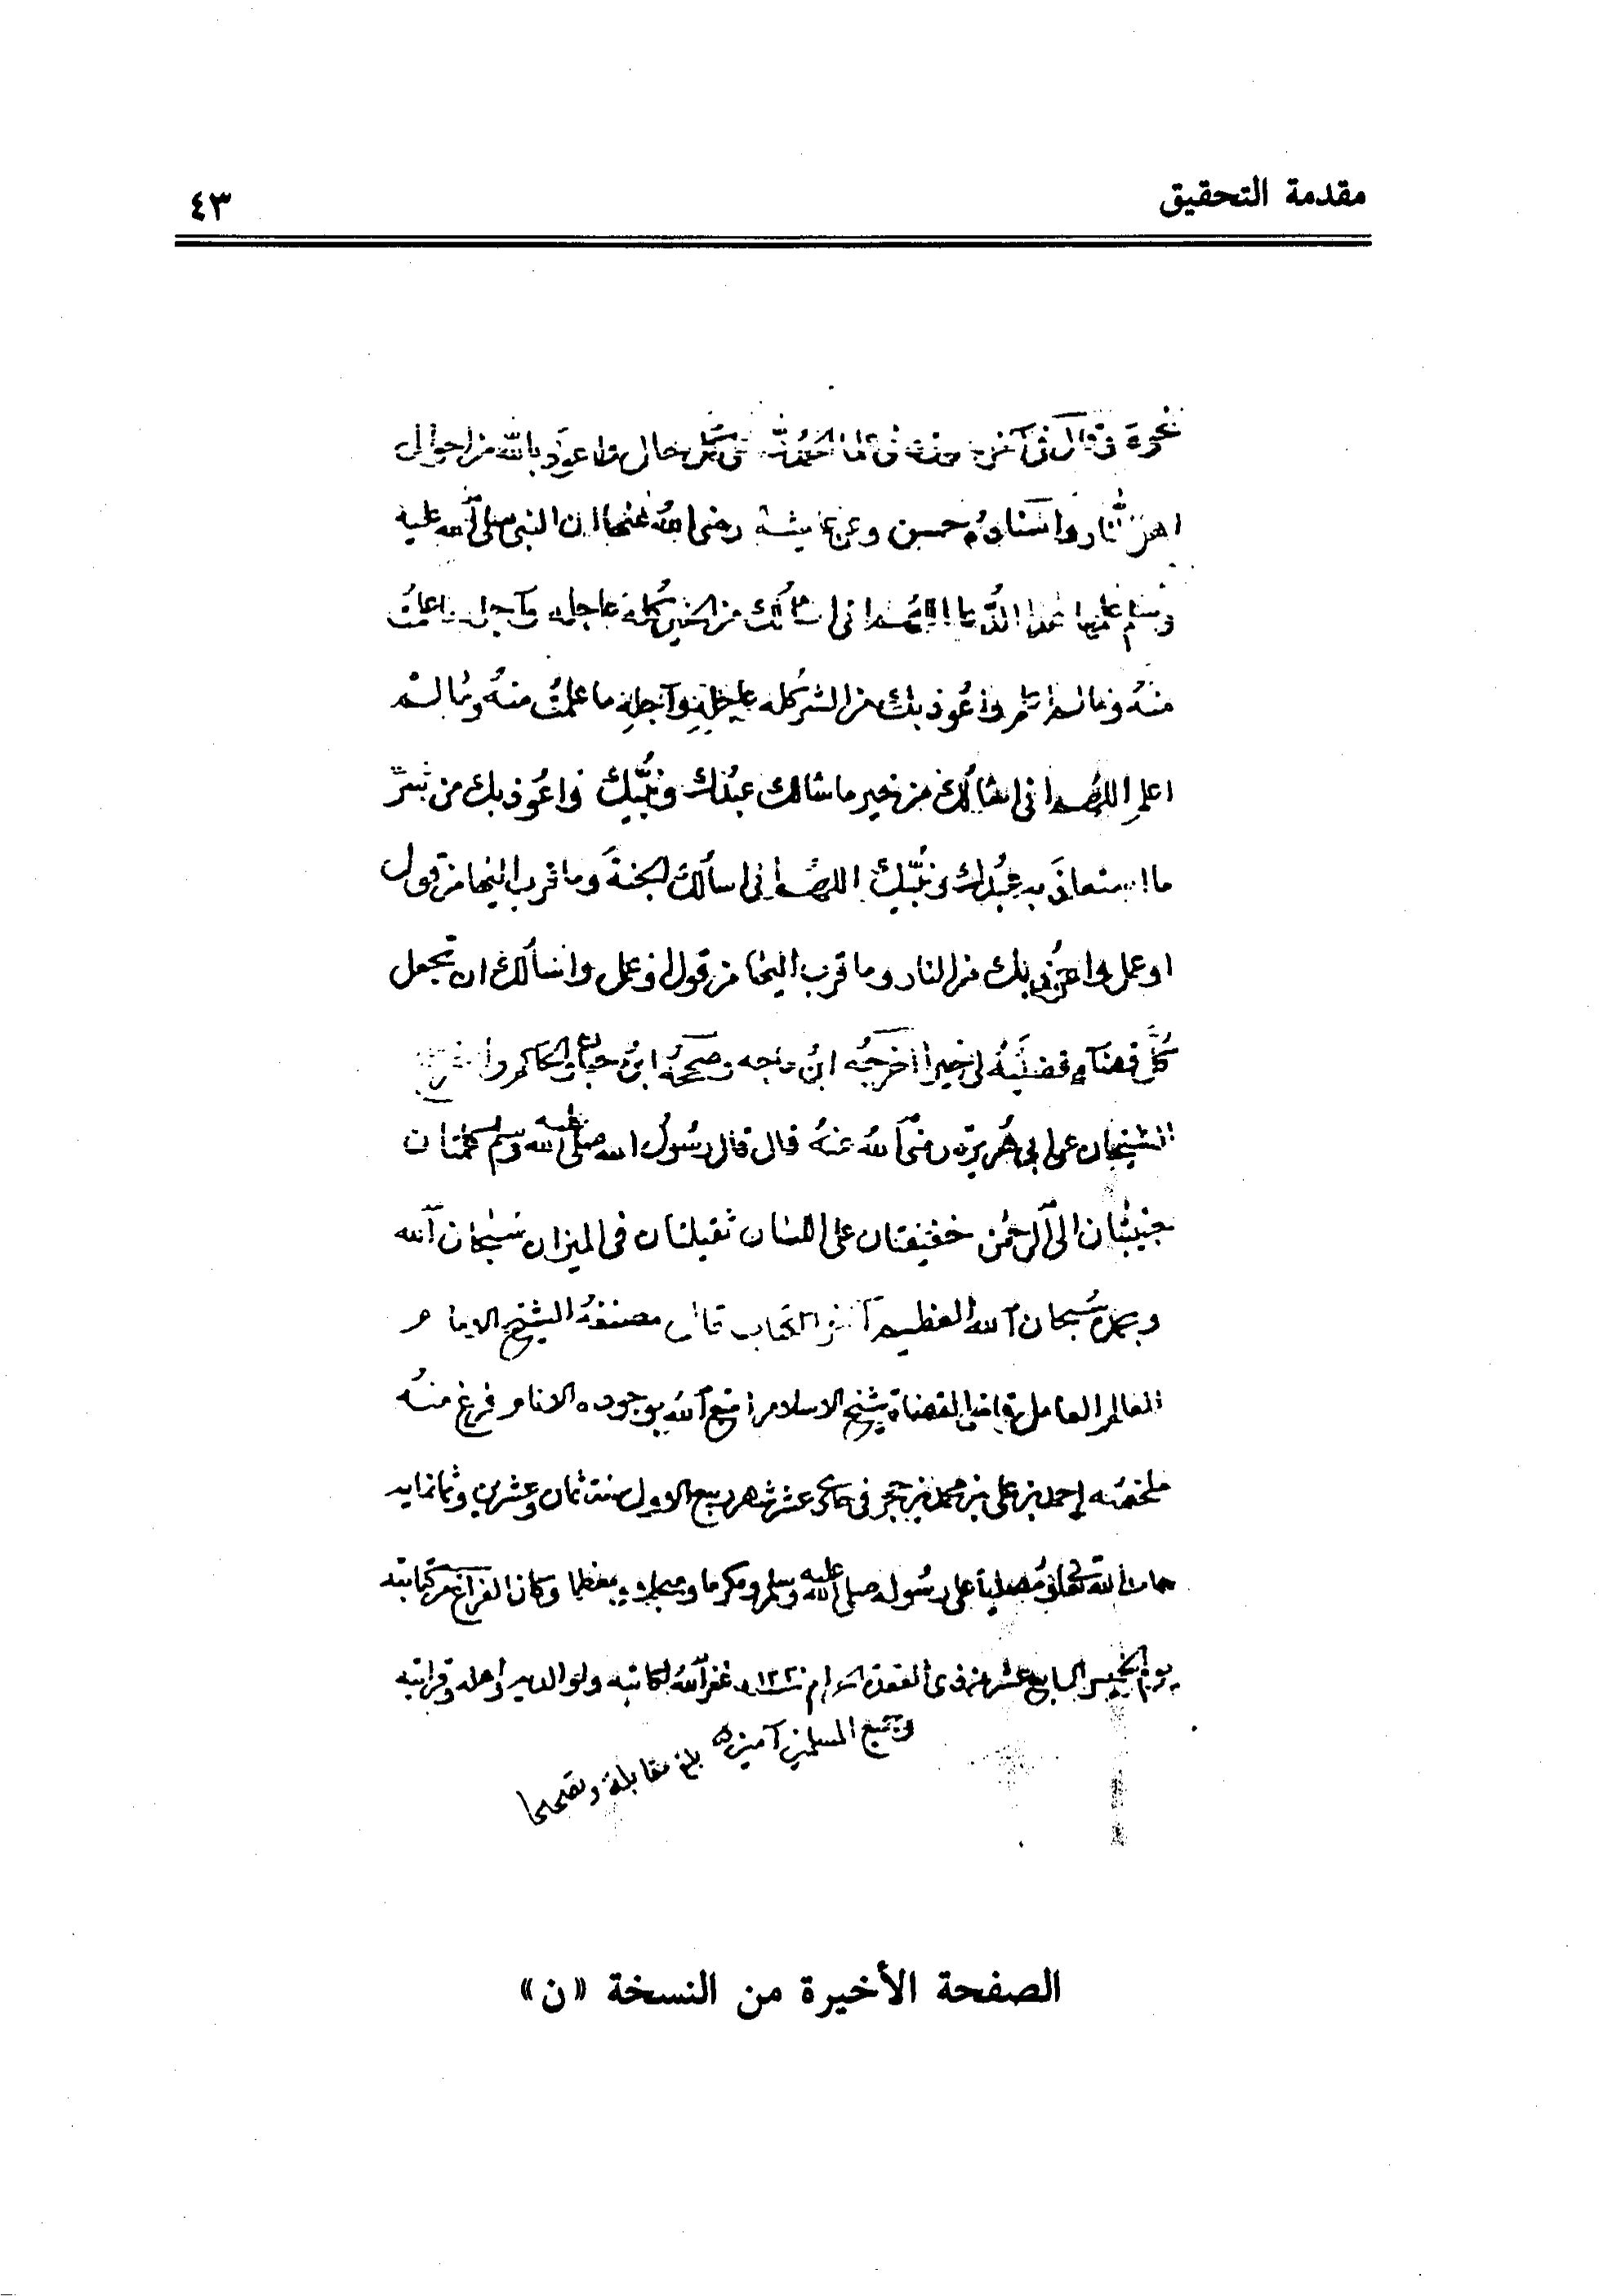 مقدمة التحقيق
٤٣
نحوه وقال في آخره الحمد لله على كل حال واعوذ بالله من احوال
اهل النار واسناده حسن وعن عايشة رضى الله عنها ان النبى صلى الله عليه
وسلم علمها هذا الدعا اللهم انى اسألك من الخير كله عاجله وآجله ما علمت
منه وما لم اعلم واعوذ بك من الشر كله عاجله وآجله ما علمت منه وما لم
اعلم اللهم انى اسألك من خير ما سالك عبدك ونبيك واعوذ بك من شر
ما استعاذ به عبدك ونبيك اللهم انى اسألك الجنة وما قرب اليها من قول
او عمل واعوذ بك من النار وما قرب اليها من قول او عمل واسألك ان تجعل
كل قضآء قضيته لى خيرا اخرجه ابن ماجه وصححه ابن حبان والحاكم واخرج
الشيخان عن ابى هريرة رضى الله عنه قال قال رسول الله صلى الله عليه وسلم كلمتان
حبيبتان الى الرحمن خفيفتان على اللسان ثقيلتان فى الميزان سبحان الله
وبحمده سبحان الله العظيم آخر الكتاب قال مصنفه الشيخ الامام
العالم العامل قاضى القضاة شيخ الاسلام امتع الله بوجوده الانام فرغ منه
ملخصه احمد بن على بن محمد بن حجر فى حادى عشر شهر ربيع الاول سنة ثمان وعشرين وثمانمايه
حامدا لله تعالى ومصليا على رسوله صلى الله عليه وسلم ومكرما ومبجلا ومعظما وكان الفراغ من كتابته
يوم الخميس السابع عشر من ذى القعدة الحرام غفر الله لكاتبه ولوالديه واهله وقرابته
وجميع المسلمين آمين
بلغ مقابلة وتصحيحا
الصفحة الأخيرة من النسخة «ن»